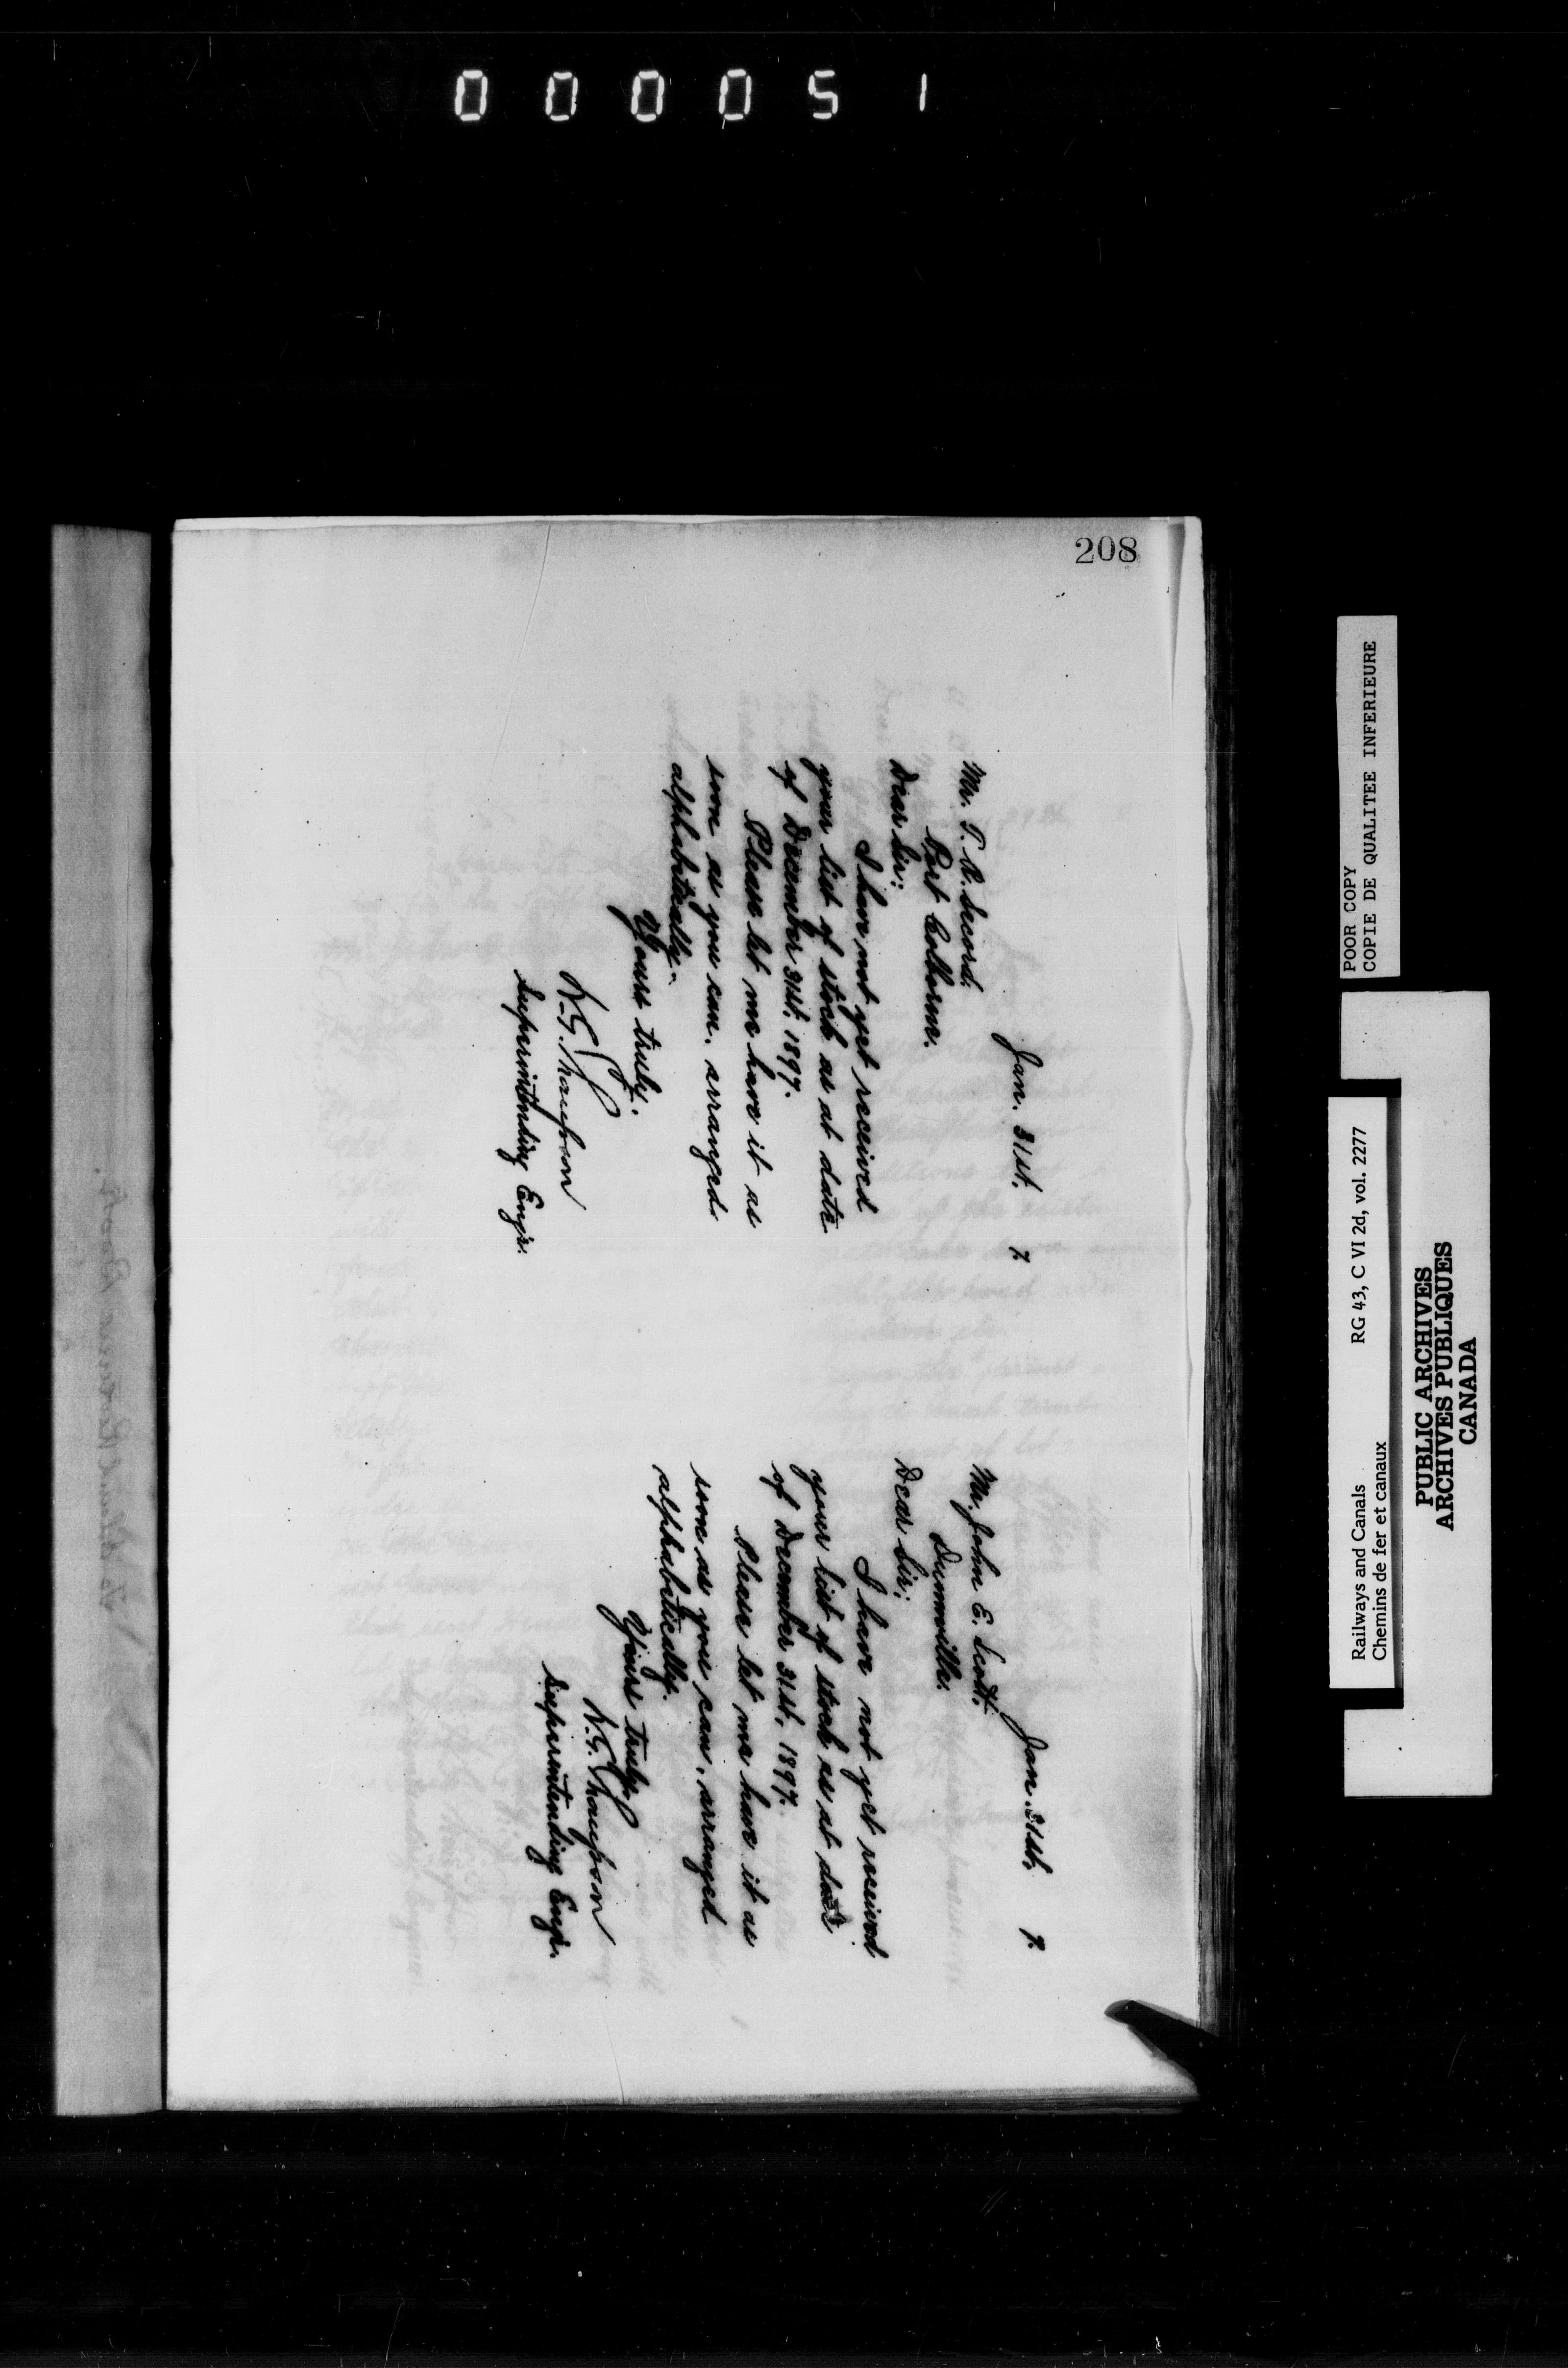 000051
208
Jan. 31st. 7.
Mr. T. R. Secord.
Port Colborne.
Dear Sir:
I have not yet received
your list of stock as at date
of December 31st. 1897.
Please let me have it as
soon as you can. arranged
alphabetically.
Yours truly.
W. G. Thompson
Superintending Engr.
Jan. 31st. 7.
Mr. John E. Scott.
Dunnville.
Dear Sir:
I have not yet received
your list of stock as at date
of December 31st. 1897.
Please let me have it as
soon as you can. arranged
alphabetically.
Yours truly.
W. G. Thompson
Superintending Engr.
POOR COPY
COPIE DE QUALITEE INFERIEURE
Railways and Canals RG 43, C VI 2d, vol. 2277
Chemins de fer et canaux
PUBLIC ARCHIVES
ARCHIVES PUBLIQUES
CANADA